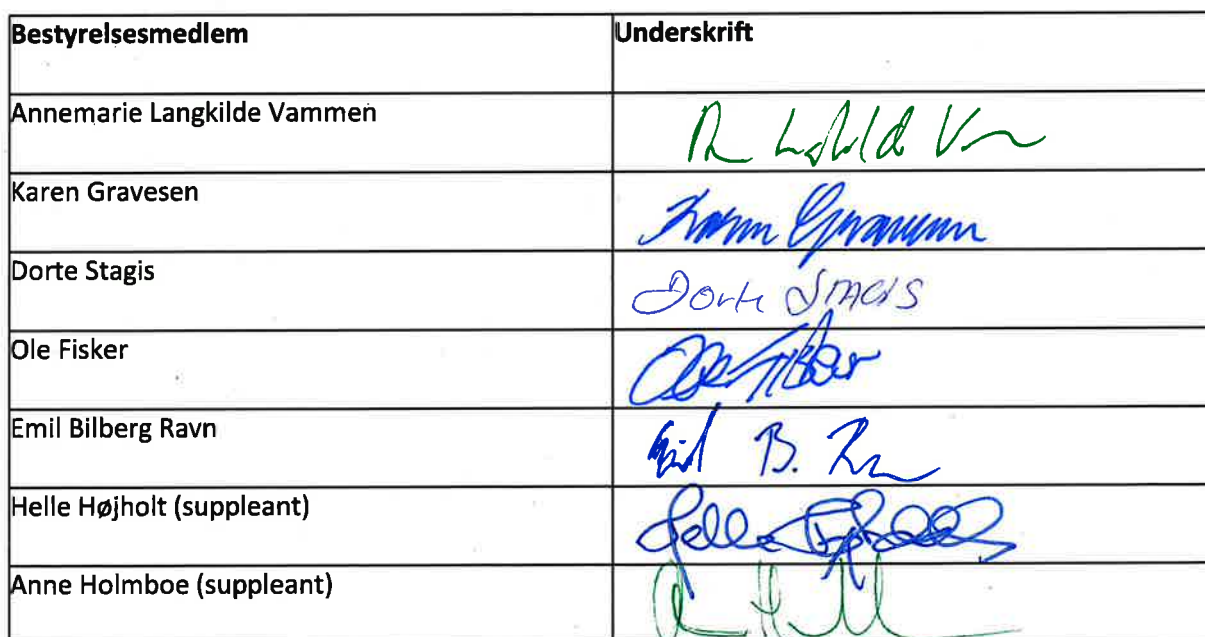 Bestyrelsesmedlem Underskrift
Annemarie Langkilde Vammen
Karen Gravesen Karen Gravesen
Dorte Stagis Dorte Stagis
Ole Fisker Ole Fisker
Emil Bilberg Ravn Emil B.
Helle Højholt (suppleant) Helle
Anne Holmboe (suppleant)